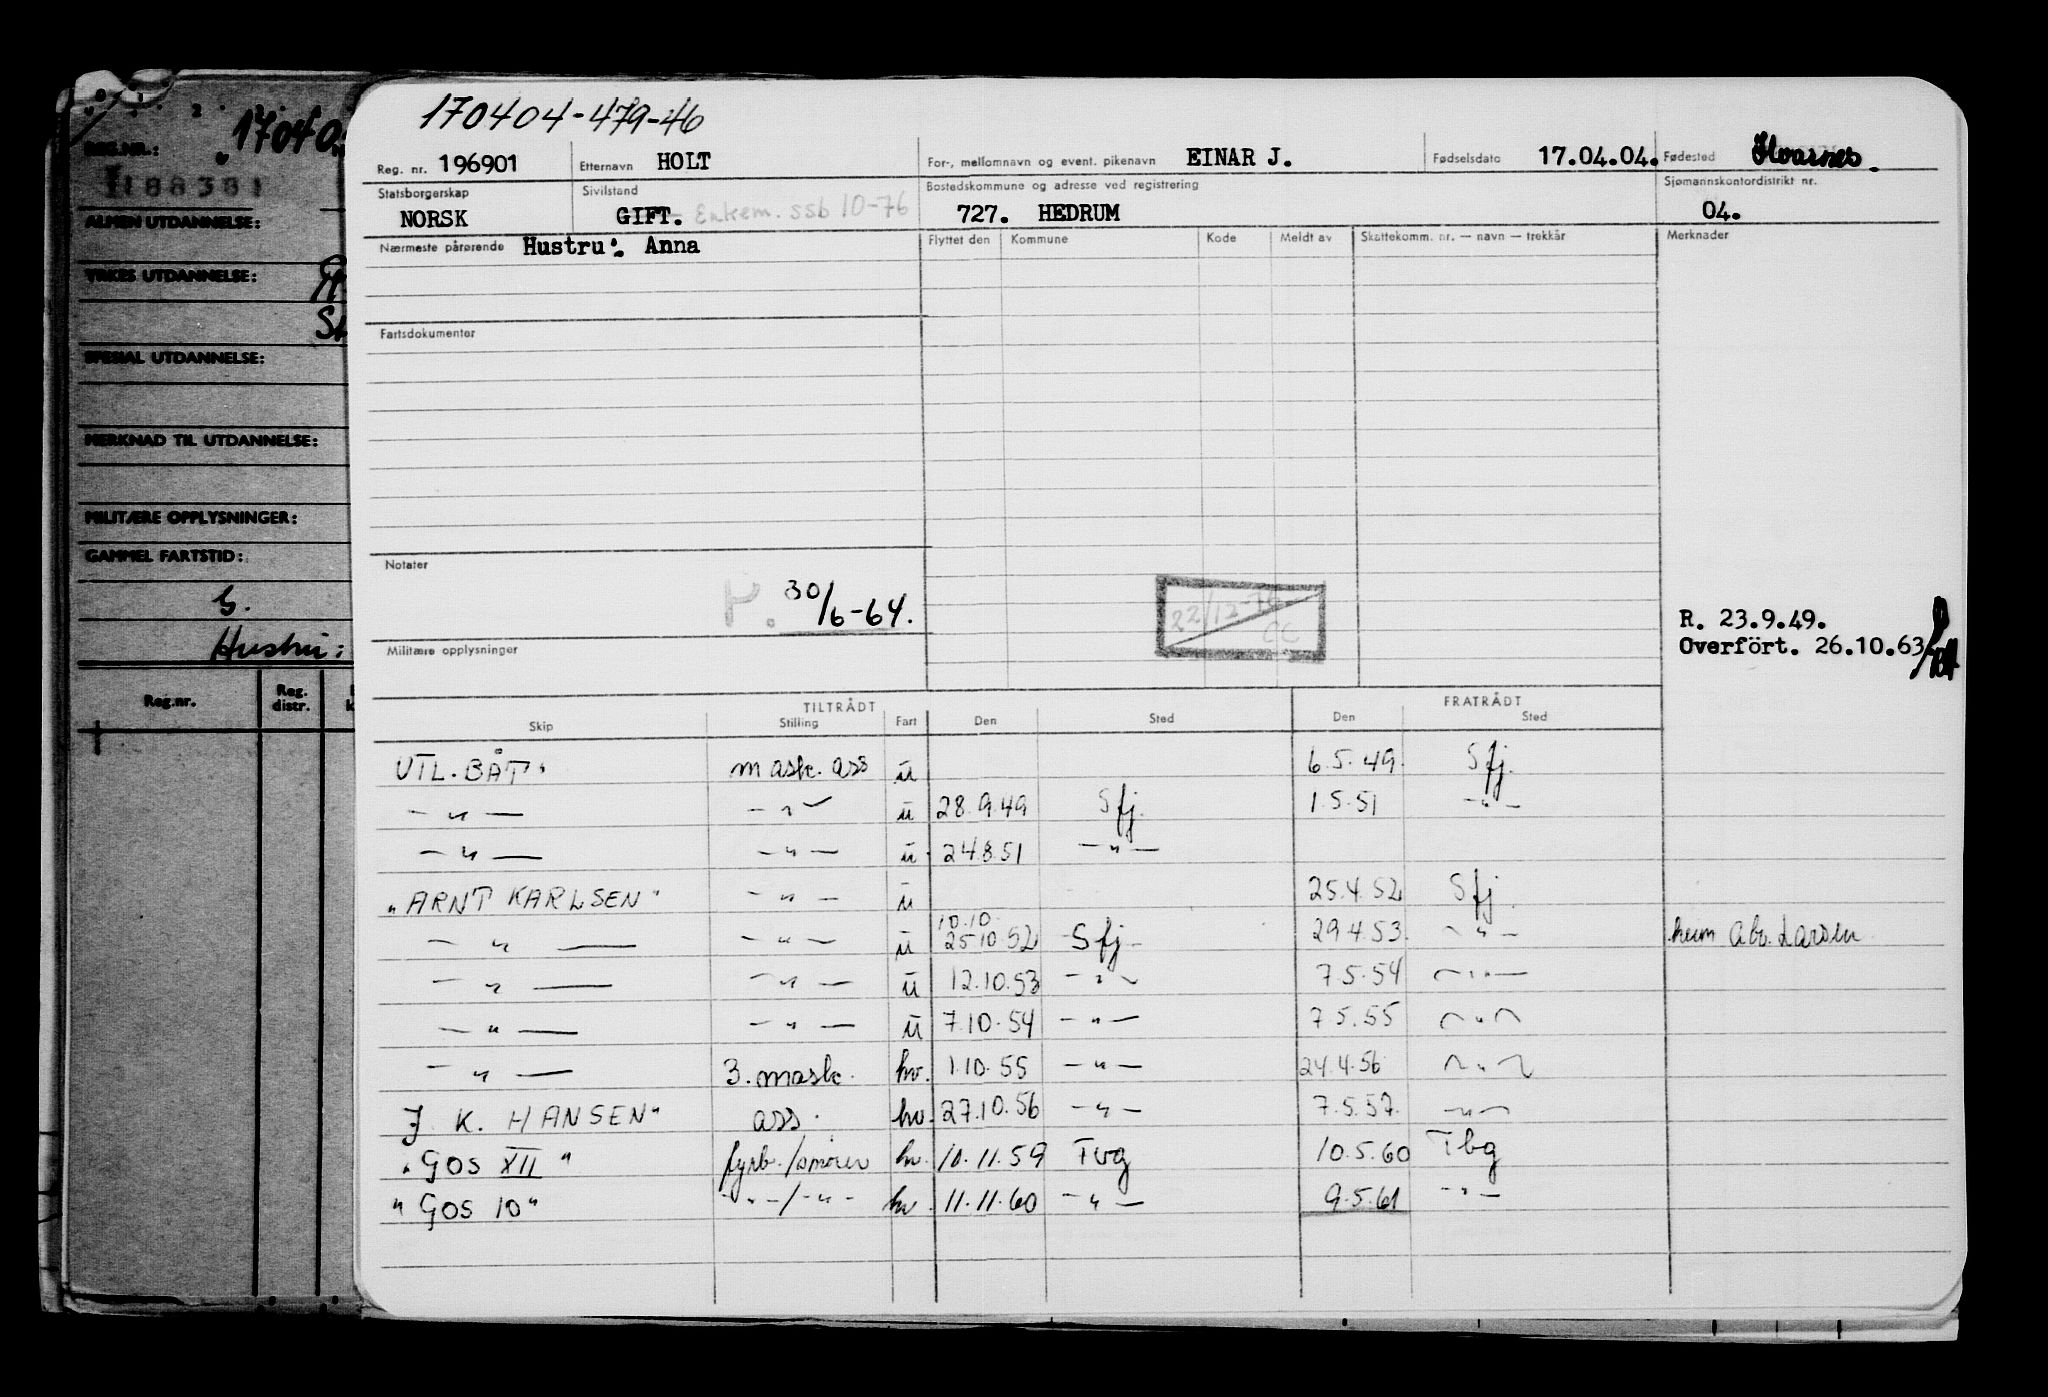 170404-479-46
Reg. nr. 196901 Etternavn HOLT For-, mellomnavn og event. pikenavn EINAR J. Fødselsdato 17.04.04. Fødested Kvarnes.
Statsborgerskap NORSK Sivilstand GIFT. Enkem. SSB 10-76 Bostedskommune og adresse ved registrering 727. HEDRUM Sjømannskontordistrikt nr. 04.
Nærmeste pårørende Hustru: Anna Flyttet den Kommune Kode Meldt av Skattekomm. nr. — navn — trekkår Merknader
Fartsdokumenter
Notater
P. 30/6-64.
22/12-76
CC
R. 23.9.49.
Overfört. 26.10.63
Militære opplysninger
TILTRÅDT FRATRÅDT
Skip Stilling Fart Den Sted Den Sted
UTL. BÅT" mask. ass ü 6.5.49. Sfj.
— " — — " — ü 28.9.49 Sfj. 1.5.51 — " —
— " — — " — ü. 24.8.51 — " —
"ARNT KARLSEN" — " — ü 25.4.52 Sfj.
10.10.
— " — — " — ü 25.10.52 Sfj. 29.4.53. — " — Larsen
— " — — " — ü 12.10.53 — " — 7.5.54 — " —
— " — — " — ü 7.10.54 — " — 7.5.55 — " —
— " — 3. mask. hv. 1.10.55 — " — 24.4.56 — " —
J. K. HANSEN" ass. hv. 27.10.56 — " — 7.5.57. — " —
"GOS XII" fyrb./smører hv. 10.11.59 Tbg 10.5.60 Tbg
"GOS 10" — " — / — " — hv. 11.11.60 — " — 9.5.61 — " —
REG.NR.: 17040
188381
ALMEN UTDANNELSE:
YRKES UTDANNELSE:
SPESIAL UTDANNELSE:
MERKNAD TIL UTDANNELSE:
MILITÆRE OPPLYSNINGER:
GAMMEL FARTSTID:
G.
Hustru:
Reg.nr. Reg. distr.